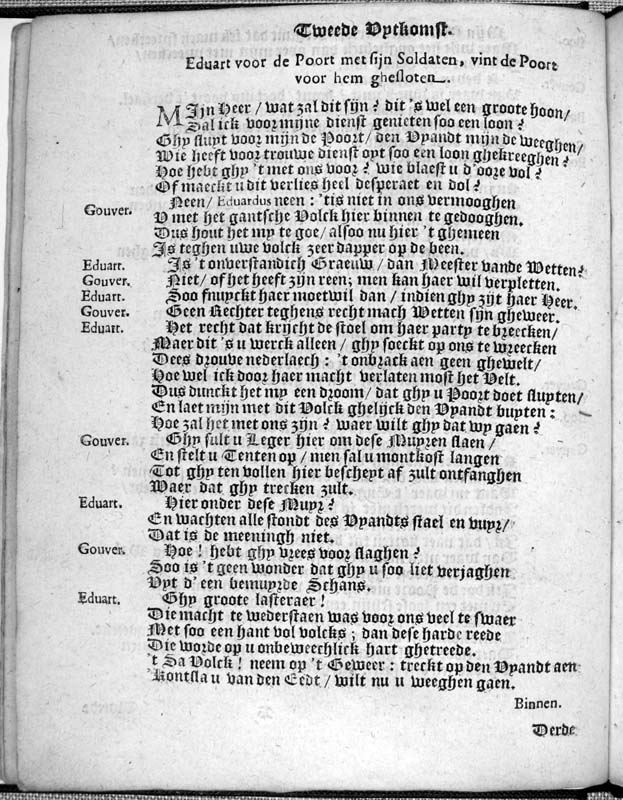 Tweede Uytkomst.
Eduart voor de Poort met sijn Soldaten, vint de Poort
voor hem ghesloten.
MIjn Heer / wat zal dit sijn? dit 's wel een groote hoon /
Sal ick voor mijne dienst genieten soo een loon?
Ghy sluyt voor mijn de Poort / den Vyandt mijn de weeghen /
Wie heeft voor trouwe dienst oyt soo een loon ghekreeghen?
Hoe hebt ghy 't met ons voor? wie blaest u d'oore vol?
Of maeckt u dit verlies heel desperaet en dol?
Gouver. Neen / Eduardus neen: 'tis niet in ons vermooghen
U met het gantsche Volck hier binnen te gedooghen.
Dus hout het my te goe / alsoo nu hier 't ghemeen
Is teghen uwe volck zeer dapper op de been.
Eduart. Is 't onverstandich Graeuw / dan Meester vande Wetten?
Gouver. Niet / of het heeft zijn reen; men kan haer wil verpletten.
Eduart. Soo snuyckt haer moetwil dan / indien ghy zijt haer Heer.
Gouver. Geen Rechter teghens recht mach Wetten sijn gheweer.
Eduart. Het recht dat krijcht de stoel om haer party te breecken /
Maer dit 's u werck alleen / ghy soeckt op ons te wreecken
Dees drouve nederlaech: 't onbrack aen geen ghewelt /
Hoe wel ick door haer macht verlaten most het Velt.
Dus dunckt het my een droom / dat ghy u Poort doet sluyten /
En laet mijn met dit Volck ghelijck den Vyandt buyten:
Hoe zal het met ons zijn? waer wilt ghy dat wy gaen?
Gouver. Ghy sult u Leger hier om dese Muyren slaen /
En stelt u Tenten op / men sal u montkost langen
Tot ghy ten vollen hier bescheyt af zult ontfanghen
Waer dat ghy trecken zult.
Eduart. Hier onder dese Muyr?
En wachten alle stondt des Vyandts stael en vuyr /
Dat is de meeningh niet.
Gouver. Hoe! hebt ghy vrees voor slaghen?
Soo is 't geen wonder dat ghy u soo liet verjaghen
Uyt d'een bemuyrde Schans.
Eduart. Ghy groote lasteraer!
Die macht te wederstaen was voor ons veel te swaer
Met soo een hant vol volcks; dan dese harde reede
Die worde op u onbeweechlick hart ghetreede.
't Sa Volck! neem op 't Geweer: treckt op den Vyandt aen
Kontsla u van den Eedt / wilt nu u weeghen gaen.
Binnen.
Derde